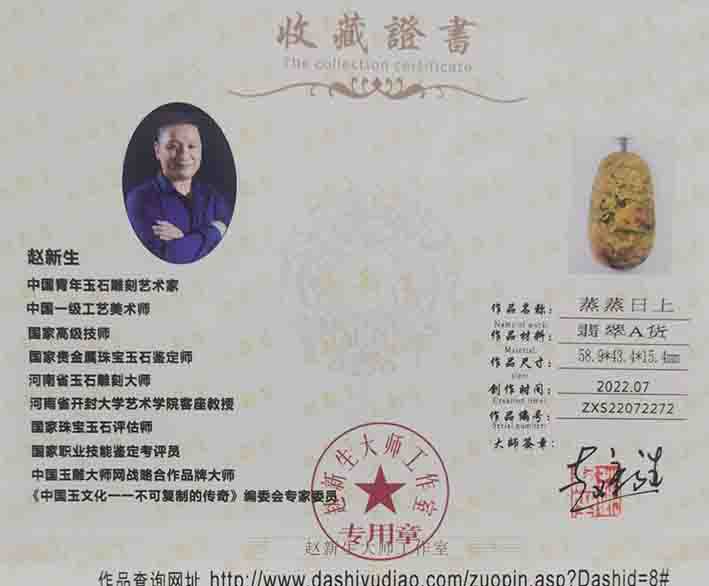 收藏證書
The collection certificate
赵新生
中国青年玉石雕刻艺术家
中国一级工艺美术师
国家高级技师
国家贵金属珠宝玉石鉴定师
河南省玉石雕刻大师
河南省开封大学艺术学院客座教授
国家珠宝玉石评估师
国家职业技能鉴定考评员
中国玉雕大师网战略合作品牌大师
《中国玉文化一一不可复制的传奇》编委会专家委员
作品名称： 蒸蒸日上
Name of work:
作品材料： 翡翠A货
Material:
作品尺寸： 58.9*43.4*15.4mm
size:
创作时间： 2022.07
Creation time:
作品编号： ZXS22072272
Serial number:
大师签章：
赵新生
赵新生大师工作室
专用章
赵新生大师工作室
作品查询网址 http://www.dashiyudiao.com/zuopin.asp?Dashid=8#